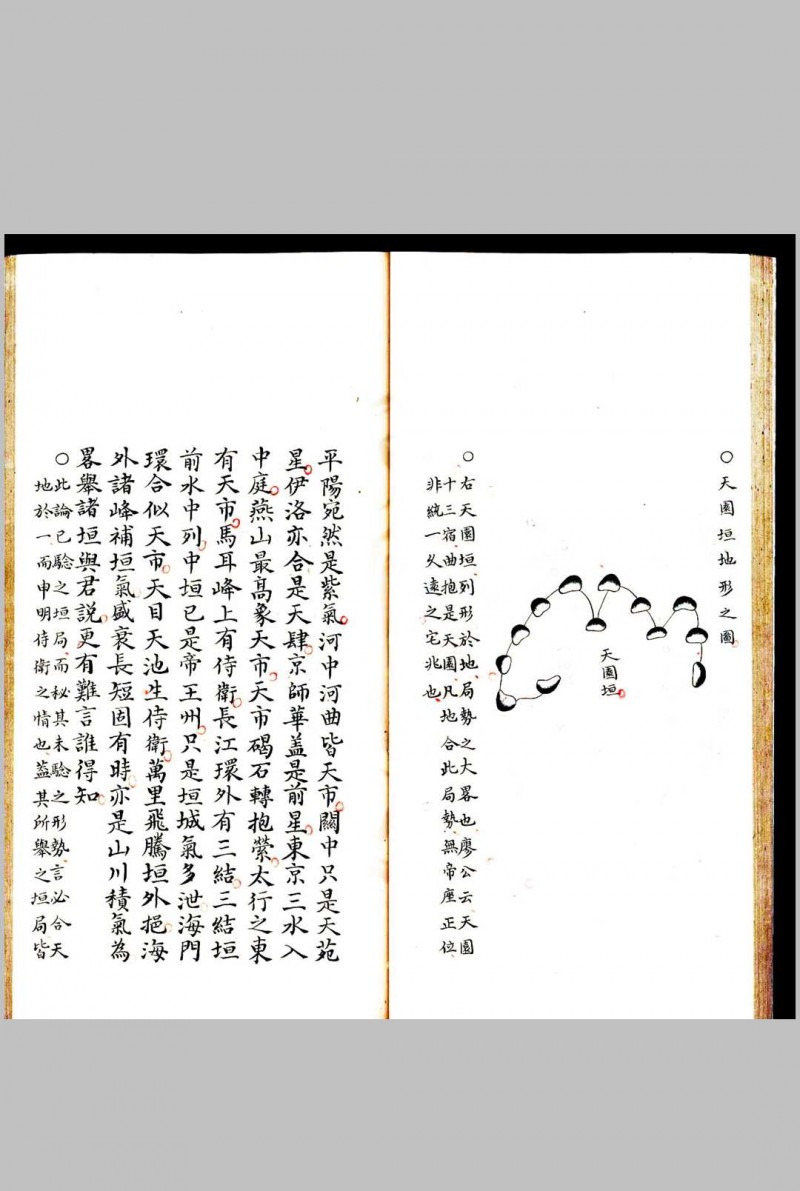 ○天園垣地形之圖
天園垣
○右天園垣列形於地局勢之大畧也廖公云天園
十三宿曲抱是天園凡地合此局勢無帝座正位
非統一久遠之宅兆也
平陽宛然是紫氣河中河曲皆天市關中只是天苑
星伊洛亦合是天肆京師華蓋是前星東京三水入
中庭燕山最高象天市天市碣石轉抱縈太行之東
有天市馬耳峰上有侍衛長江環外有三結三結垣
前水中列中垣已是帝王州只是垣城氣多泄海門
環合似天市天目天池生侍衛萬里飛騰垣外挹海
外諸峰補垣氣盛衰長短固有時亦是山川積氣為
畧舉諸垣與君說更有難言誰得知
○此論已驗之垣局而秘其未驗之形勢言必合天
地於一而申明侍衛之情也蓋其所舉之垣局皆